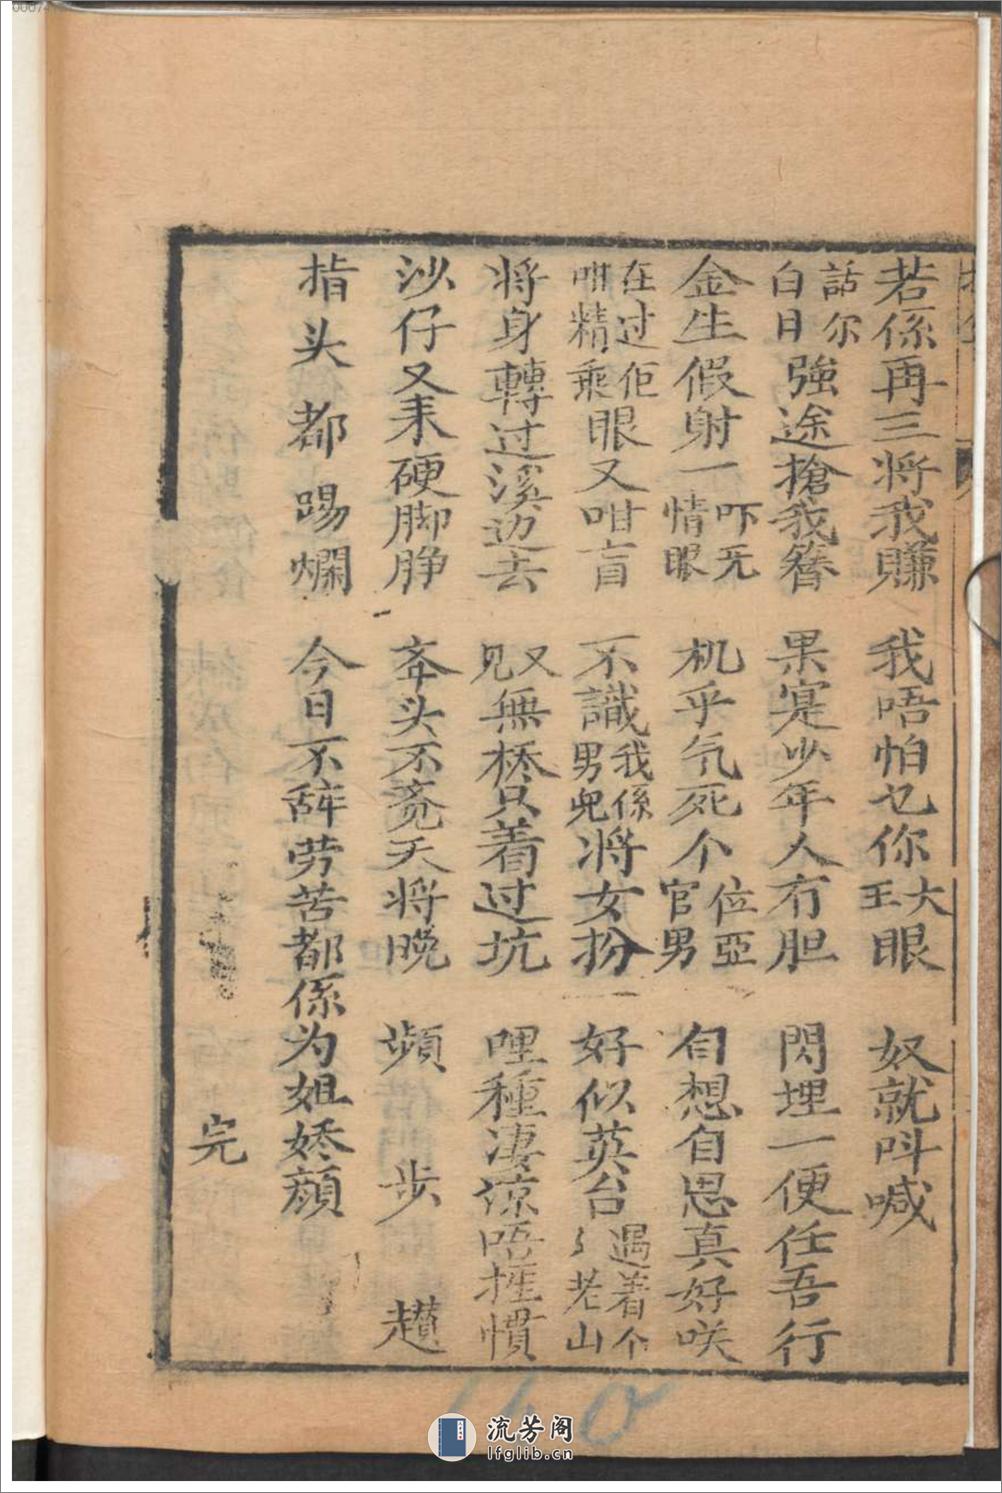 若係再三将我賺　我唔怕乜你大王眼　奴就呌喊
話尔白日強途搶我簪　果寔少年人冇胆　閃埋一便任吾行
金生假射一吓无情眼　机乎气死个位亞官男　自想自思真好咲
在过佢咁精乘眼又咁盲　不識我係男兒将女扮　好似英台遇着个老山
将身轉过溪边去　又見無橋只着过坑　哩種凄凉唔捱慣
沙仔又耒硬脚睁　夲头不覔天将晚　頻步趲
指头都踢爛　今日不辞劳苦都係为姐娇顔
完
流芳阁
lfglib.cn